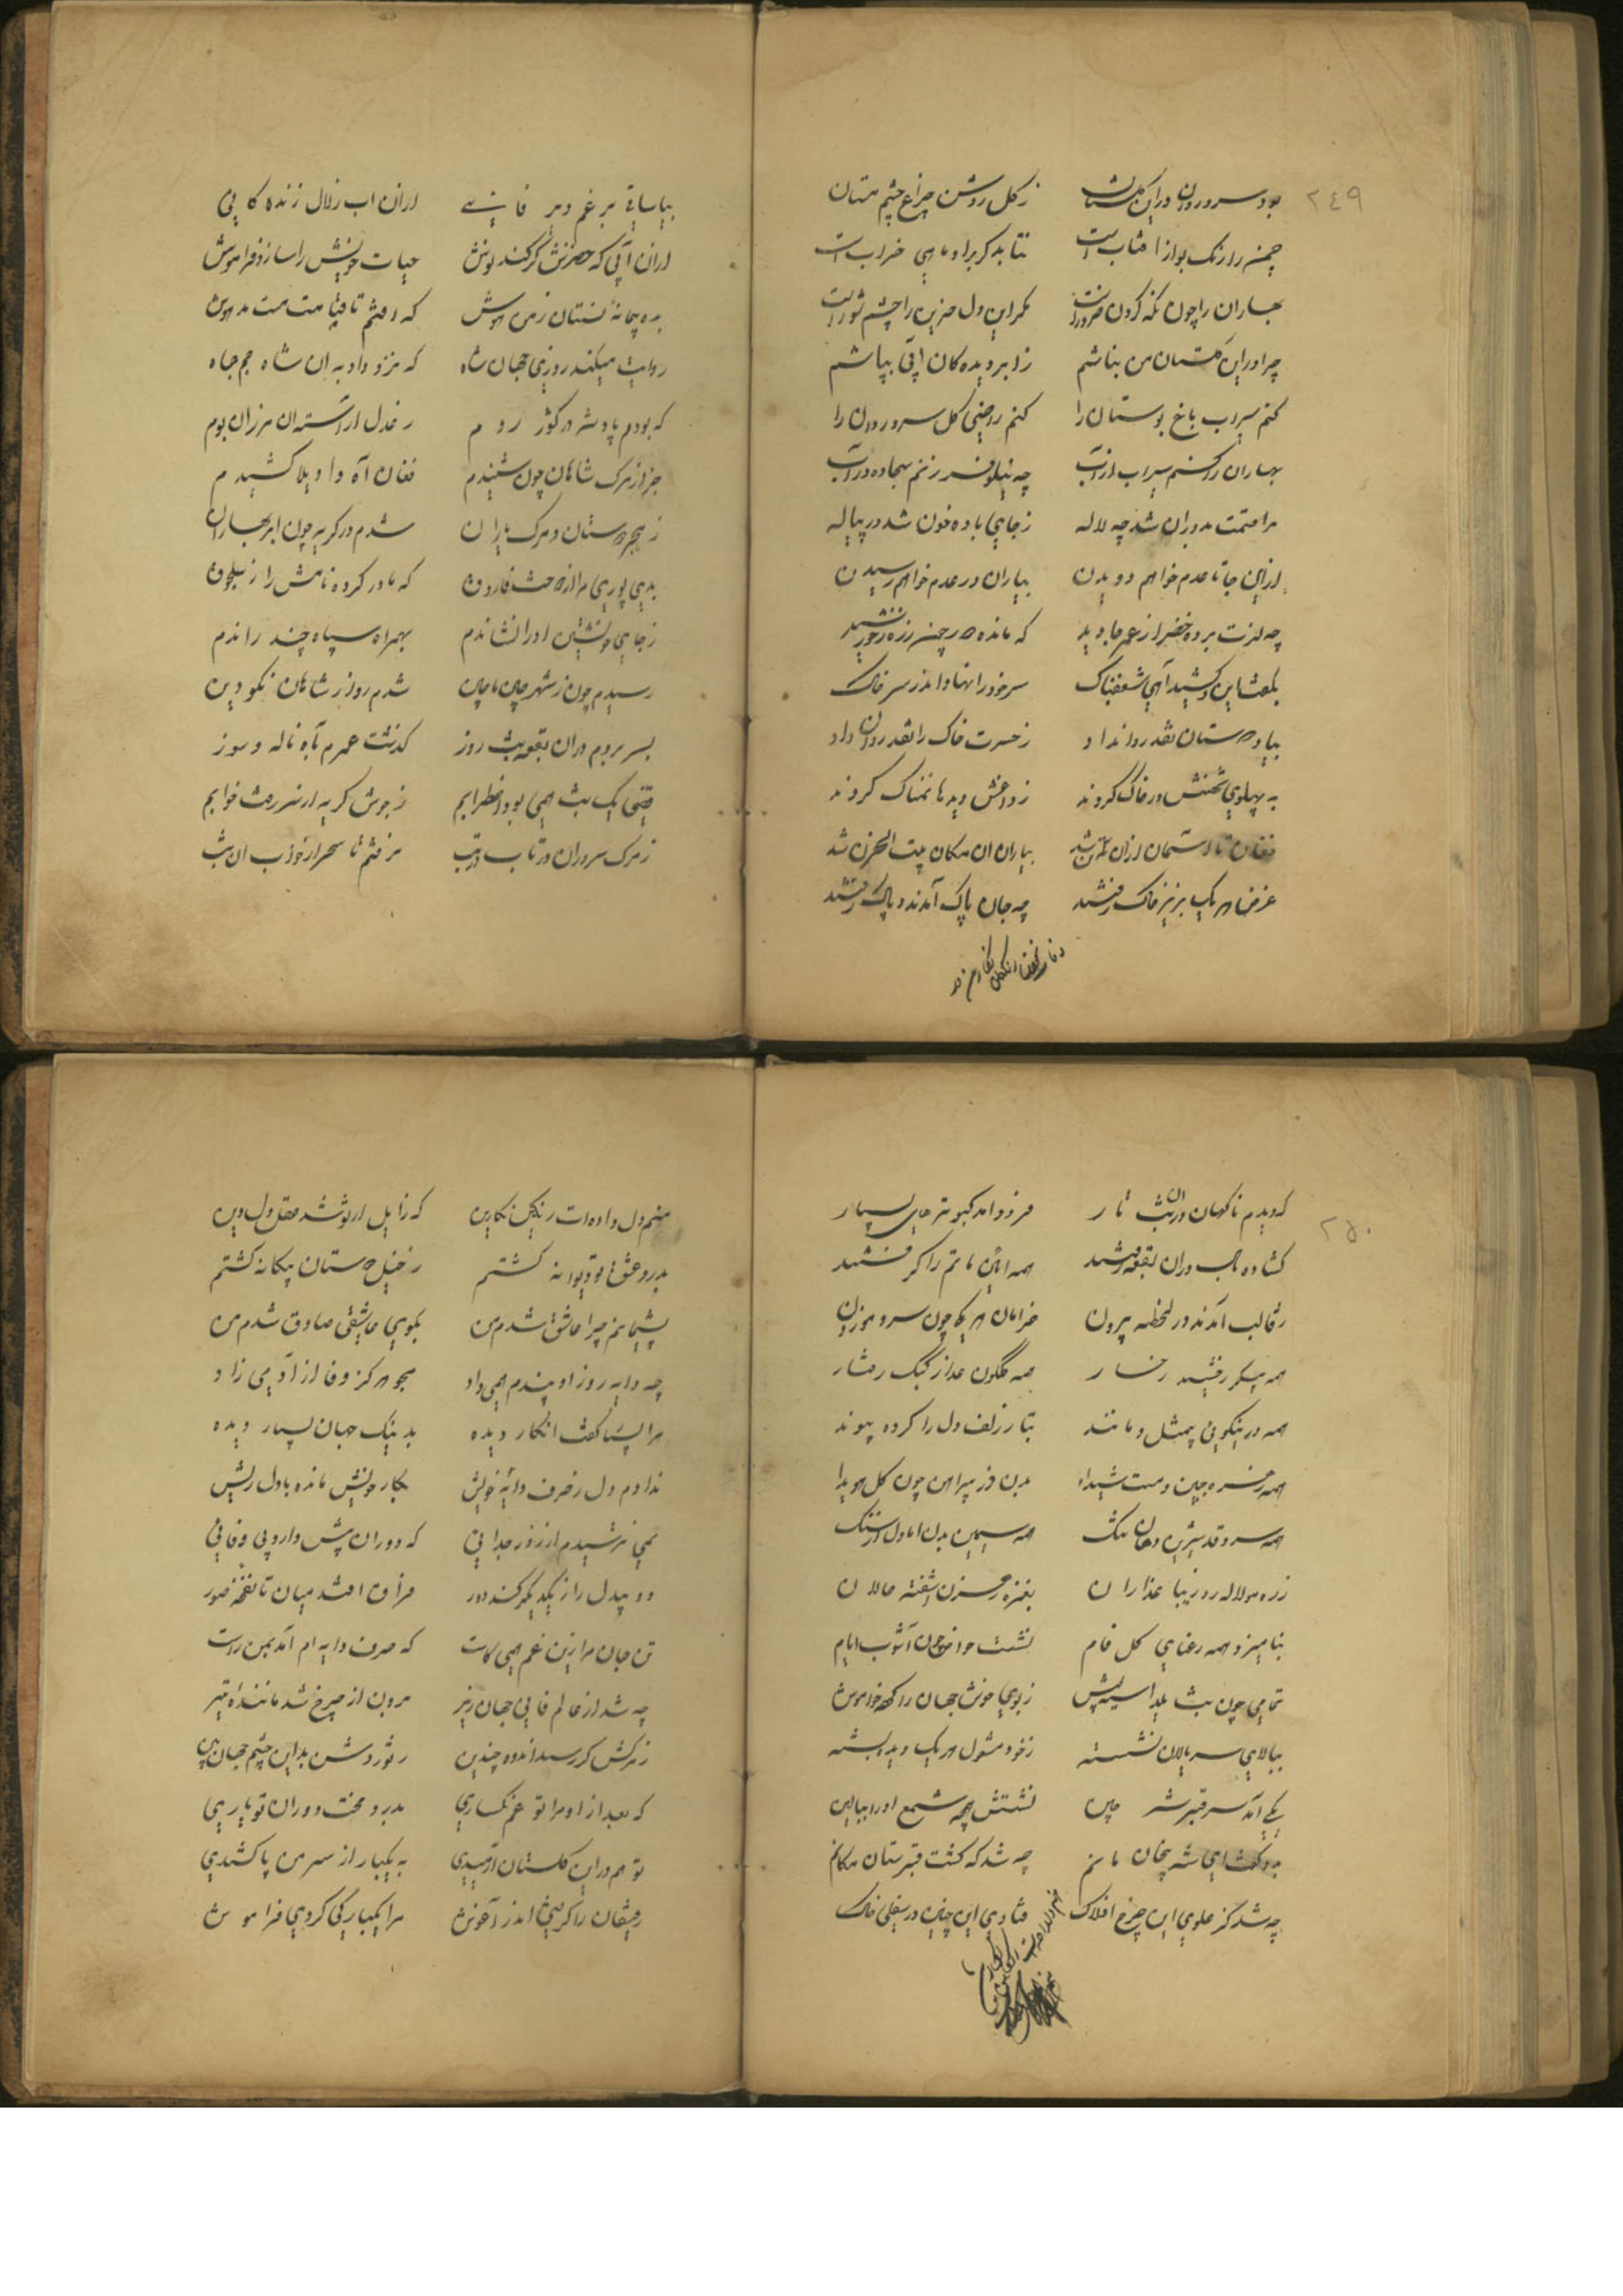 ٢٤٩
بود سرو روان در این گلستان زکل روشن چراغ چشم مستان
چمن را رنک بو از افتاب است نتابد کر براو ماهی خراب است
بهاران را چون نکه کردن ضرور است مکر این دل حزین را چشم شور است
چرا در این گلستان من نباشم ز ابر دیده کان ابی بپاشم
کنم سیراب باغ بوستان را کنم راضی کل سرو روان را
بهاران را کنم سیراب از آب چه نیلوفر زنم سجاده در آب
مرا قسمت بدوران شد چه لاله زجای باده خون شد در پیاله
ازین جا تا عدم خواهم دویدن بیاران در عدم خواهم رسیدن
چه لذت برده خضر از عمر جاوید که مانده در چمن
بگفت این کشید آهی شعفناک سر خود را نهاد اندر سر خاک
بیاد دوستان نقد روان داد زحسرت خاک را نقد روان داد
به پهلوی در خاک کردند زداغش دیدها نمناک کردند
فغان تا آسمان از آن شد بیاران ان مکان بیت الحزن شد
غرض هر یک بزیر خاک رفتند چه جان پاک آمدند و پاک رفتند
بیا ساقی بر غم دهر فانی ازان اب زلال زنده کانی
ازان آبی که خضرش کر کند نوش حیات خویش را سازد فراموش
بده پیمانهٔ بستان زمن هوش که افتم تا قیامت مست مدهوش
روایت میکند روزی جهان شاه که نزد دادبه ان شاه جم جاه
که بودم پادشه در کشور روم زعدل اراسته ان مرزان بوم
خبر از مرک شاهان چون شنیدم فغان آه وا ویلا کشیدم
ز هجر دوستان و مرک یاران شدم در کریه چون ابر بهاران
بدی پوری مرا از فارون که مادر کرده نامش را زیلجون
زجای خویشتن اورا نشاندم بهمراه سپاه چند راندم
رسیدم چون زشهر چان ماچان شدم روانه شاهان نکو دین
بسر بردم دران بقعه بیست روز کذشت عمرم به آه ناله و سوز
یک شب همی بود اضطرابم زجوش کریه از سر رفت خوابم
زمرک سروران در تاب و در تب نرفتم تا سحر از ان شب
٢٥٠
که دیدم ناکهان در ان شب تار فرود امد کبوترهای بسیار
کشاده لب دران بقعه رفتند همه ائین ماتم را کرفتند
زقالب آمدند در لحظه بیرون خرامان هر یکی چون سرو موزون
همه پیکر رخسار همه کلگون عذار کبک رفتار
همه در نیکویی بیمثل و مانند بتار زلف دل را کرده پیوند
همه زهره جبین و مست شیدا بدن در پیراهن چون کل هویدا
همه سرو قد شیرین دهان تنک همه سیمین بدن اما دل از سنک
زره مو لاله رو زیبا عذاران بغمزه رهزن اشفته حالان
بنامیزد همه رعنای کل فام نشست آشوب ایام
تمامی چون شب یلدا سیه پوش زبوی خوش جهان را کرده خاموش
ببالای سر یاران نشسته زخود مشغول هر یک دیده بسته
یکی آمد سر قبر شه چین نشستش همچه شمع او را ببالین
بدو کفت ای شه پنهان مانم چه شد که کشت قبرستان مکانم
چه شد کز علوی این چرخ افلاک فتادی این چنین در سفلی خاک
منم دل داده ات رنگین نکارین که زایل از تو شد عقل و دل و دین
بدرد عشق تو دیوانه کشتم زخیل دوستان بیکانه کشتم
پشیمانم چرا عاشق شدم من بکوی عاشقی صادق شدم من
چه دایه روز او پندم همی داد مجو هرکز وفا از آدمی زاد
مرا بس کفت انکار دیده بد نیک جهان بسیار دیده
ندادم دل زحرف دایهٔ خویش بکار خویش مانده با دل ریش
نمی ترسیدم از روز جدایی که دوران پیش دارد بی وفایی
دو بیدل را زیکدیکر کند دور فراق افتد میان تا نفخهٔ صور
تن جان مرا زین غم همی کاست که حرف دایه ام آمد بمن راست
چه شد از عالم فانی جهان زیر برون از چرخ شد مانندهٔ تیر
زمرکش کر رسد اندوه چندین زتو روشن بد این چشم جهان بین
که بعد از او مرا تو غمکساری بدرد محنت دوران تو یاری
تو هم در این کلستان ارمیدی به یکبار از سر من پا کشیدی
رفیقان را کرفتی اندر آغوش مرا یکبارکی کردی فراموش